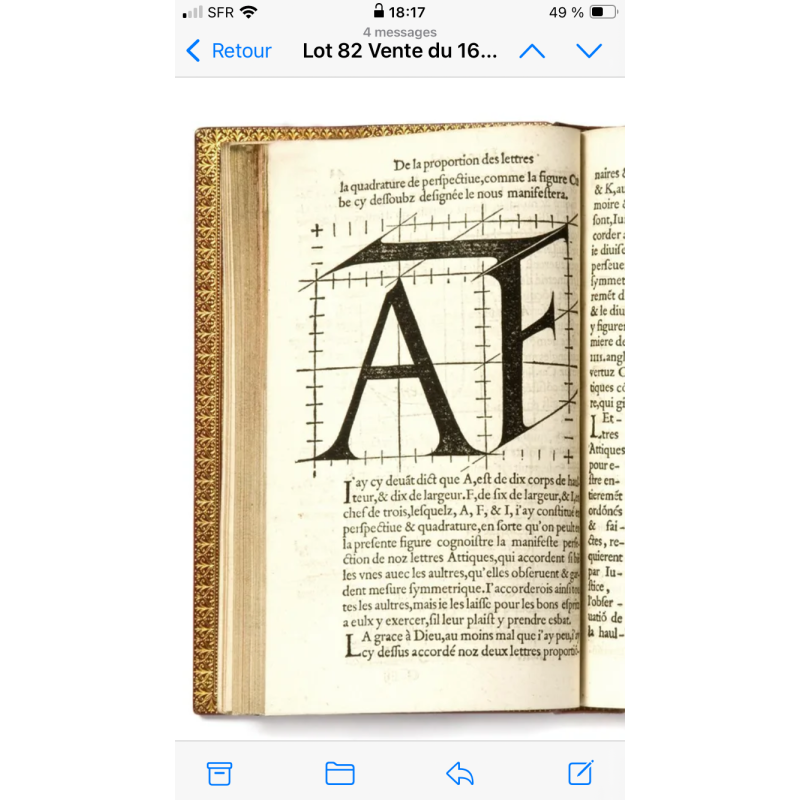 SFR 18:17 49 %
4 messages
Retour Lot 82 Vente du 16...
De la proportion des lettres
la quadrature de perſpectiue,comme la figure Cu
be cy deſſoubz deſignée le nous manifeſtera.
A F
I'ay cy deuãt dict que A,eſt de dix corps de
teur,& dix de largeur.F,de ſix de largeur,&
chef de trois,leſquelz, A, F, & I, i'ay conſtitué
perſpectiue & quadrature,en ſorte qu'on
la preſente figure cognoiſtre la manifeſte
ction de noz lettres Attiques,qui accordent
les vnes auec les aultres,qu'elles obſeruent &
dent meſure ſymmetrique.I'accorderois ainſi
tes les aultres,mais ie les laiſſe pour les bons
a eulx y exercer,ſil leur plaiſt y prendre esbat.
LA grace à Dieu,au moins mal que i'ay peu,
cy deſſus accordé noz deux lettres
naires
& K,au
moire
ſont,Iu
corder
ie diuiſ
perſeue
ſymmet
remēt d
& le diu
y figure
miere de
IIII.angl
vertuz
tiques
re,qui gi
Et-
Ltres
Attiques
pour e-
ſtre en-
tieremēt
ordōnés
& fai-
ctes, re-
quierent
par Iu-
ſtice,
l'obſer-
uatiō de
la haul-